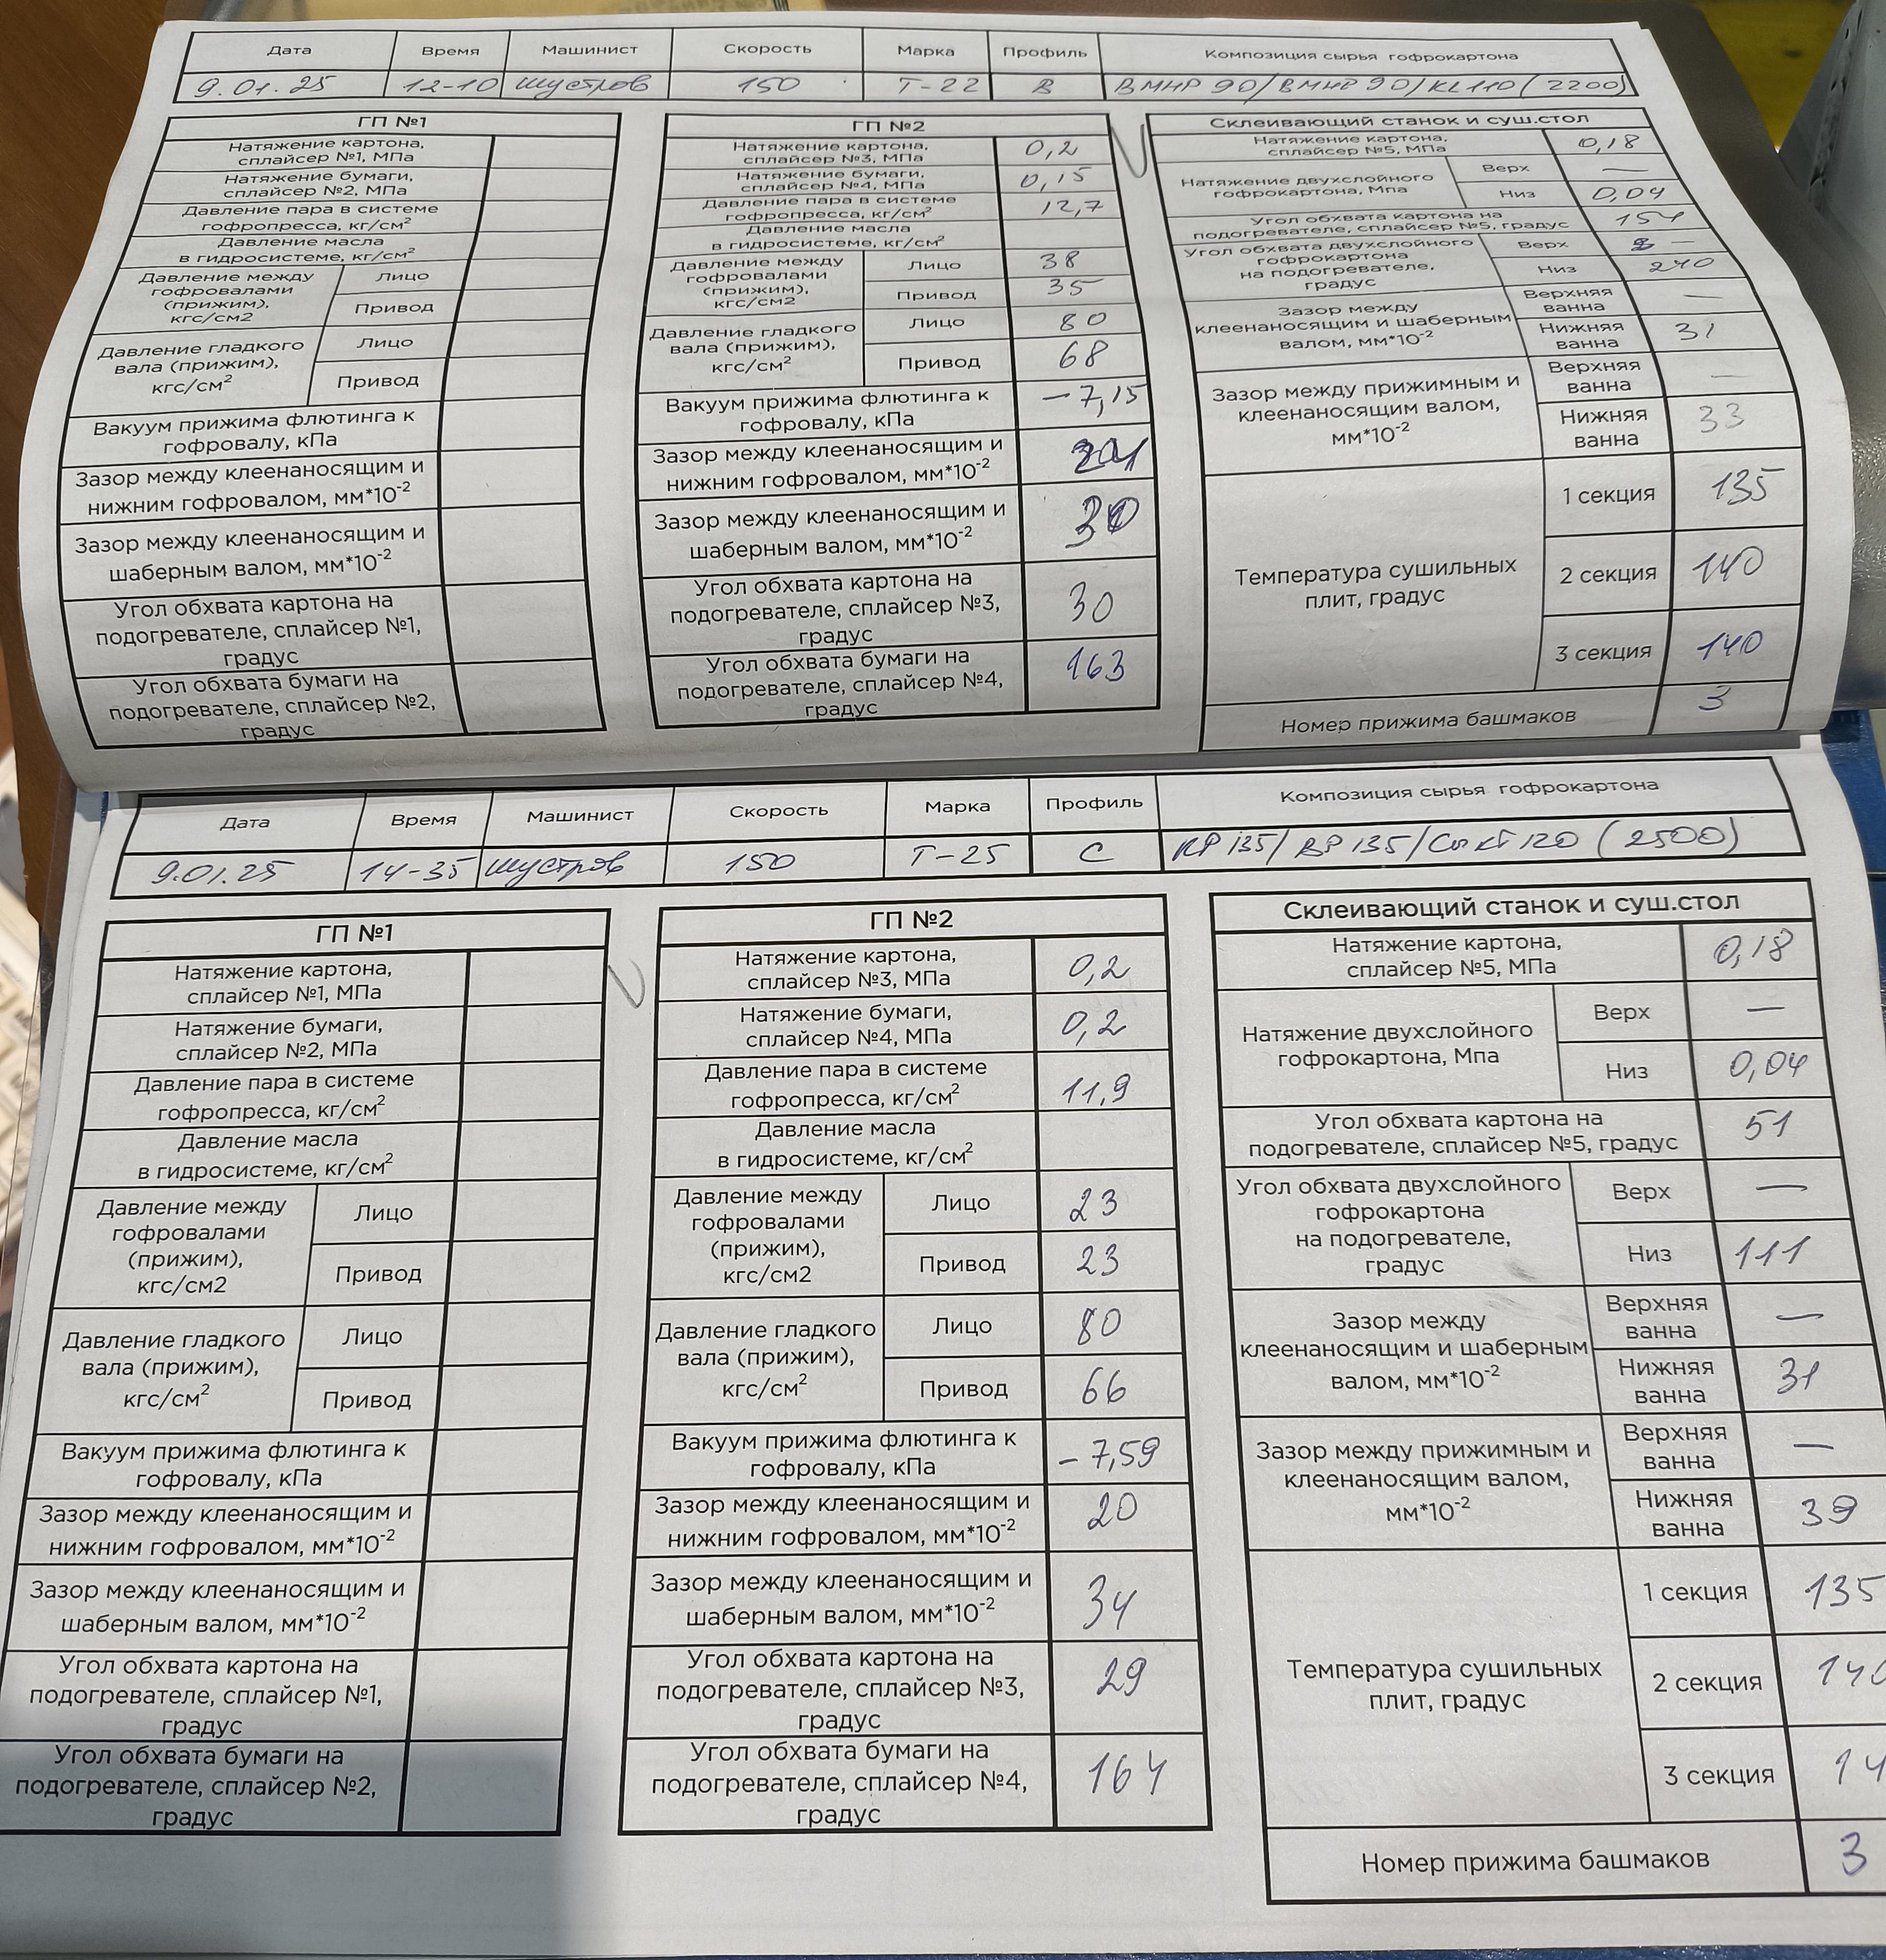 Дата Время Машинист Скорость Марка Профиль Композиция сырья гофрокартона
9.01.25 12-10 Шустров 150 Т-22 В ВМНР 90/ВМНР 90/KL110 (2200)
ГП №1
Натяжение картона,
сплайсер №1, МПа
Натяжение бумаги,
сплайсер №2, МПа
Давление пара в системе
гофропресса, кг/см²
Давление масла
в гидросистеме, кг/см²
Давление между
гофровалами
(прижим),
кгс/см2
Лицо
Привод
Давление гладкого
вала (прижим),
кгс/см²
Лицо
Привод
Вакуум прижима флютинга к
гофровалу, кПа
Зазор между клеенаносящим и
нижним гофровалом, мм*10⁻²
Зазор между клеенаносящим и
шаберным валом, мм*10⁻²
Угол обхвата картона на
подогревателе, сплайсер №1,
градус
Угол обхвата бумаги на
подогревателе, сплайсер №2,
градус
ГП №2
Натяжение картона,
сплайсер №3, МПа 0,2
Натяжение бумаги,
сплайсер №4, МПа 0,15
Давление пара в системе
гофропресса, кг/см² 12,7
Давление масла
в гидросистеме, кг/см²
Давление между
гофровалами
(прижим),
кгс/см2
Лицо 38
Привод 35
Давление гладкого
вала (прижим),
кгс/см²
Лицо 80
Привод 68
Вакуум прижима флютинга к
гофровалу, кПа -7,15
Зазор между клеенаносящим и
нижним гофровалом, мм*10⁻²
Зазор между клеенаносящим и
шаберным валом, мм*10⁻² 30
Угол обхвата картона на
подогревателе, сплайсер №3,
градус 30
Угол обхвата бумаги на
подогревателе, сплайсер №4,
градус 163
Склеивающий станок и суш.стол
Натяжение картона,
сплайсер №5, МПа 0,18
Натяжение двухслойного
гофрокартона, Мпа
Верх —
Низ 0,04
Угол обхвата картона на
подогревателе, сплайсер №5, градус
Угол обхвата двухслойного
гофрокартона
на подогревателе,
градус
Верх —
Низ 240
Зазор между
клеенаносящим и шаберным
валом, мм*10⁻²
Верхняя
ванна —
Нижняя
ванна 31
Зазор между прижимным и
клеенаносящим валом,
мм*10⁻²
Верхняя
ванна —
Нижняя
ванна 33
Температура сушильных
плит, градус
1 секция 135
2 секция 140
3 секция 140
Номер прижима башмаков 3
Дата Время Машинист Скорость Марка Профиль Композиция сырья гофрокартона
9.01.25 14-35 Шустров 150 Т-25 С 135/ 135/ 120 (2500)
ГП №1
Натяжение картона,
сплайсер №1, МПа
Натяжение бумаги,
сплайсер №2, МПа
Давление пара в системе
гофропресса, кг/см²
Давление масла
в гидросистеме, кг/см²
Давление между
гофровалами
(прижим),
кгс/см2
Лицо
Привод
Давление гладкого
вала (прижим),
кгс/см²
Лицо
Привод
Вакуум прижима флютинга к
гофровалу, кПа
Зазор между клеенаносящим и
нижним гофровалом, мм*10⁻²
Зазор между клеенаносящим и
шаберным валом, мм*10⁻²
Угол обхвата картона на
подогревателе, сплайсер №1,
градус
Угол обхвата бумаги на
подогревателе, сплайсер №2,
градус
ГП №2
Натяжение картона,
сплайсер №3, МПа 0,2
Натяжение бумаги,
сплайсер №4, МПа 0,2
Давление пара в системе
гофропресса, кг/см² 11,9
Давление масла
в гидросистеме, кг/см²
Давление между
гофровалами
(прижим),
кгс/см2
Лицо 23
Привод 23
Давление гладкого
вала (прижим),
кгс/см²
Лицо 80
Привод 66
Вакуум прижима флютинга к
гофровалу, кПа -7,59
Зазор между клеенаносящим и
нижним гофровалом, мм*10⁻² 20
Зазор между клеенаносящим и
шаберным валом, мм*10⁻² 34
Угол обхвата картона на
подогревателе, сплайсер №3,
градус 29
Угол обхвата бумаги на
подогревателе, сплайсер №4,
градус 164
Склеивающий станок и суш.стол
Натяжение картона,
сплайсер №5, МПа 0,18
Натяжение двухслойного
гофрокартона, Мпа
Верх —
Низ 0,04
Угол обхвата картона на
подогревателе, сплайсер №5, градус 51
Угол обхвата двухслойного
гофрокартона
на подогревателе,
градус
Верх —
Низ 111
Зазор между
клеенаносящим и шаберным
валом, мм*10⁻²
Верхняя
ванна —
Нижняя
ванна 31
Зазор между прижимным и
клеенаносящим валом,
мм*10⁻²
Верхняя
ванна —
Нижняя
ванна 39
Температура сушильных
плит, градус
1 секция 135
2 секция 140
3 секция 14
Номер прижима башмаков 3